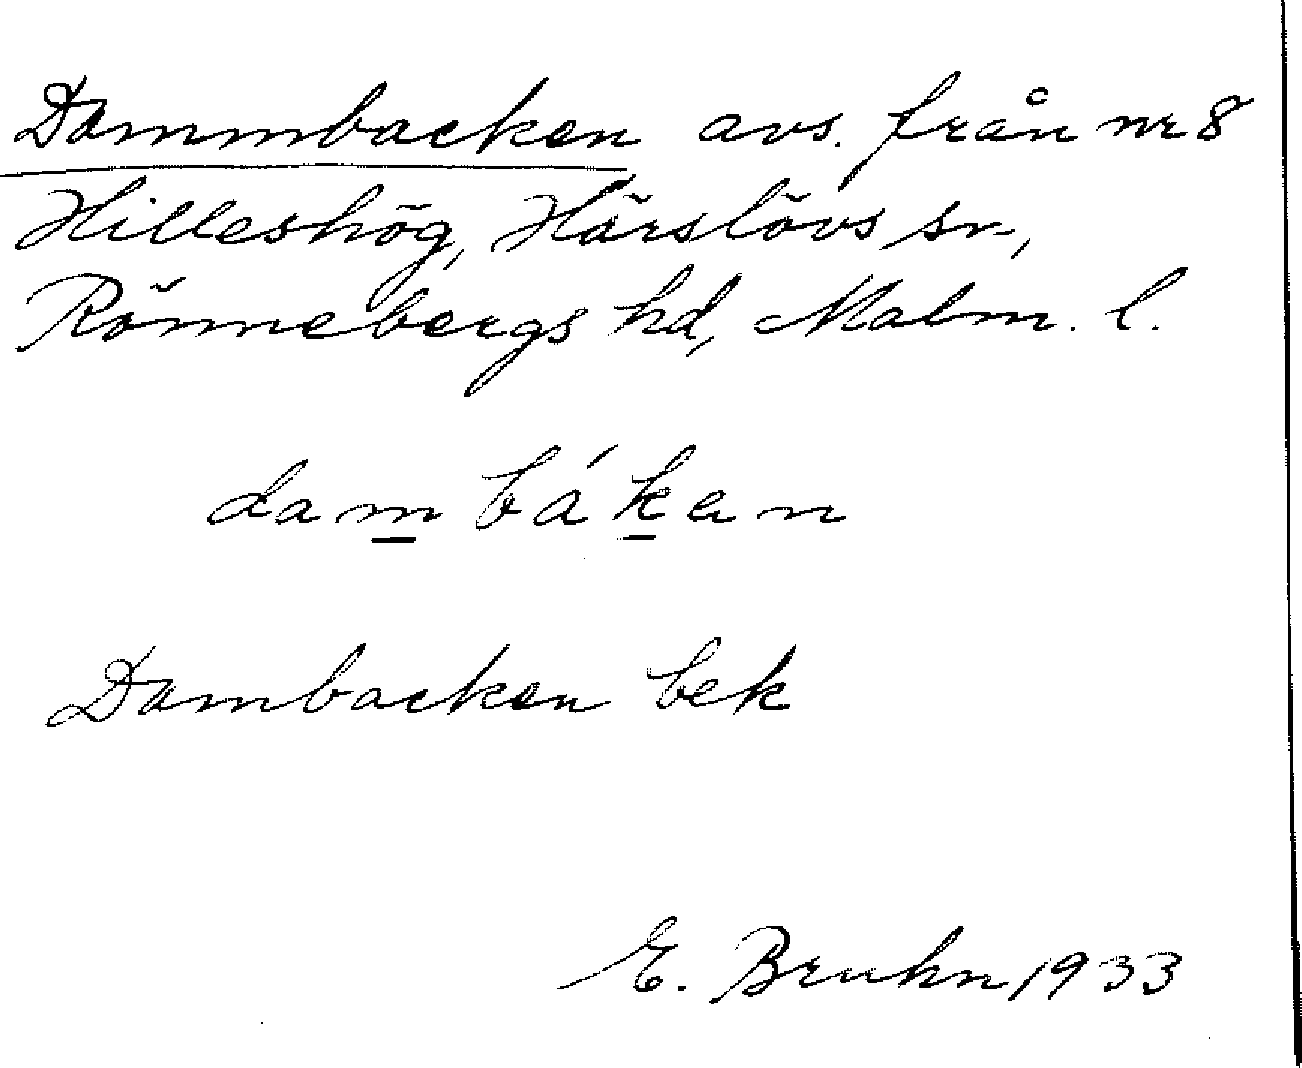 Dammbacken avs. från nr 8
Hilleshög, Härslövs sn,
Rönnebergs hd, Malm. l.
dam bákan
Dambacken bek
E. Bruhn 1933